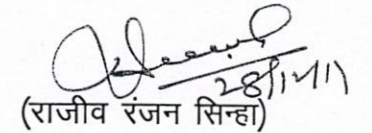 28/11/11
(राजीव रंजन सिन्हा)